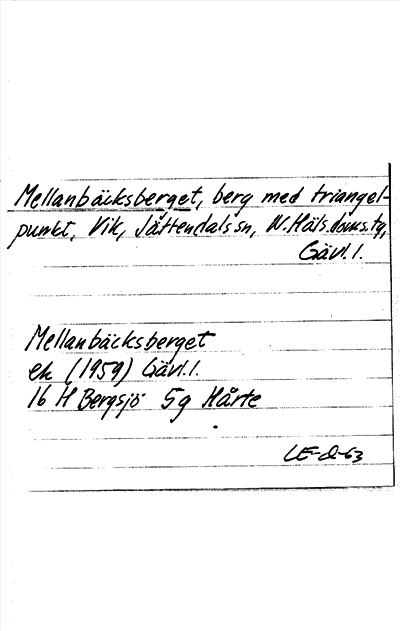 Mellanbäcksberget, berg med triangel-
punkt, Vik, Jättendals sn, N. Häls. doms.ty,
Gävl. l.
Mellanbäcksberget
ek (1959) Gävl. l.
16 H Bergsjö 5g Hårte